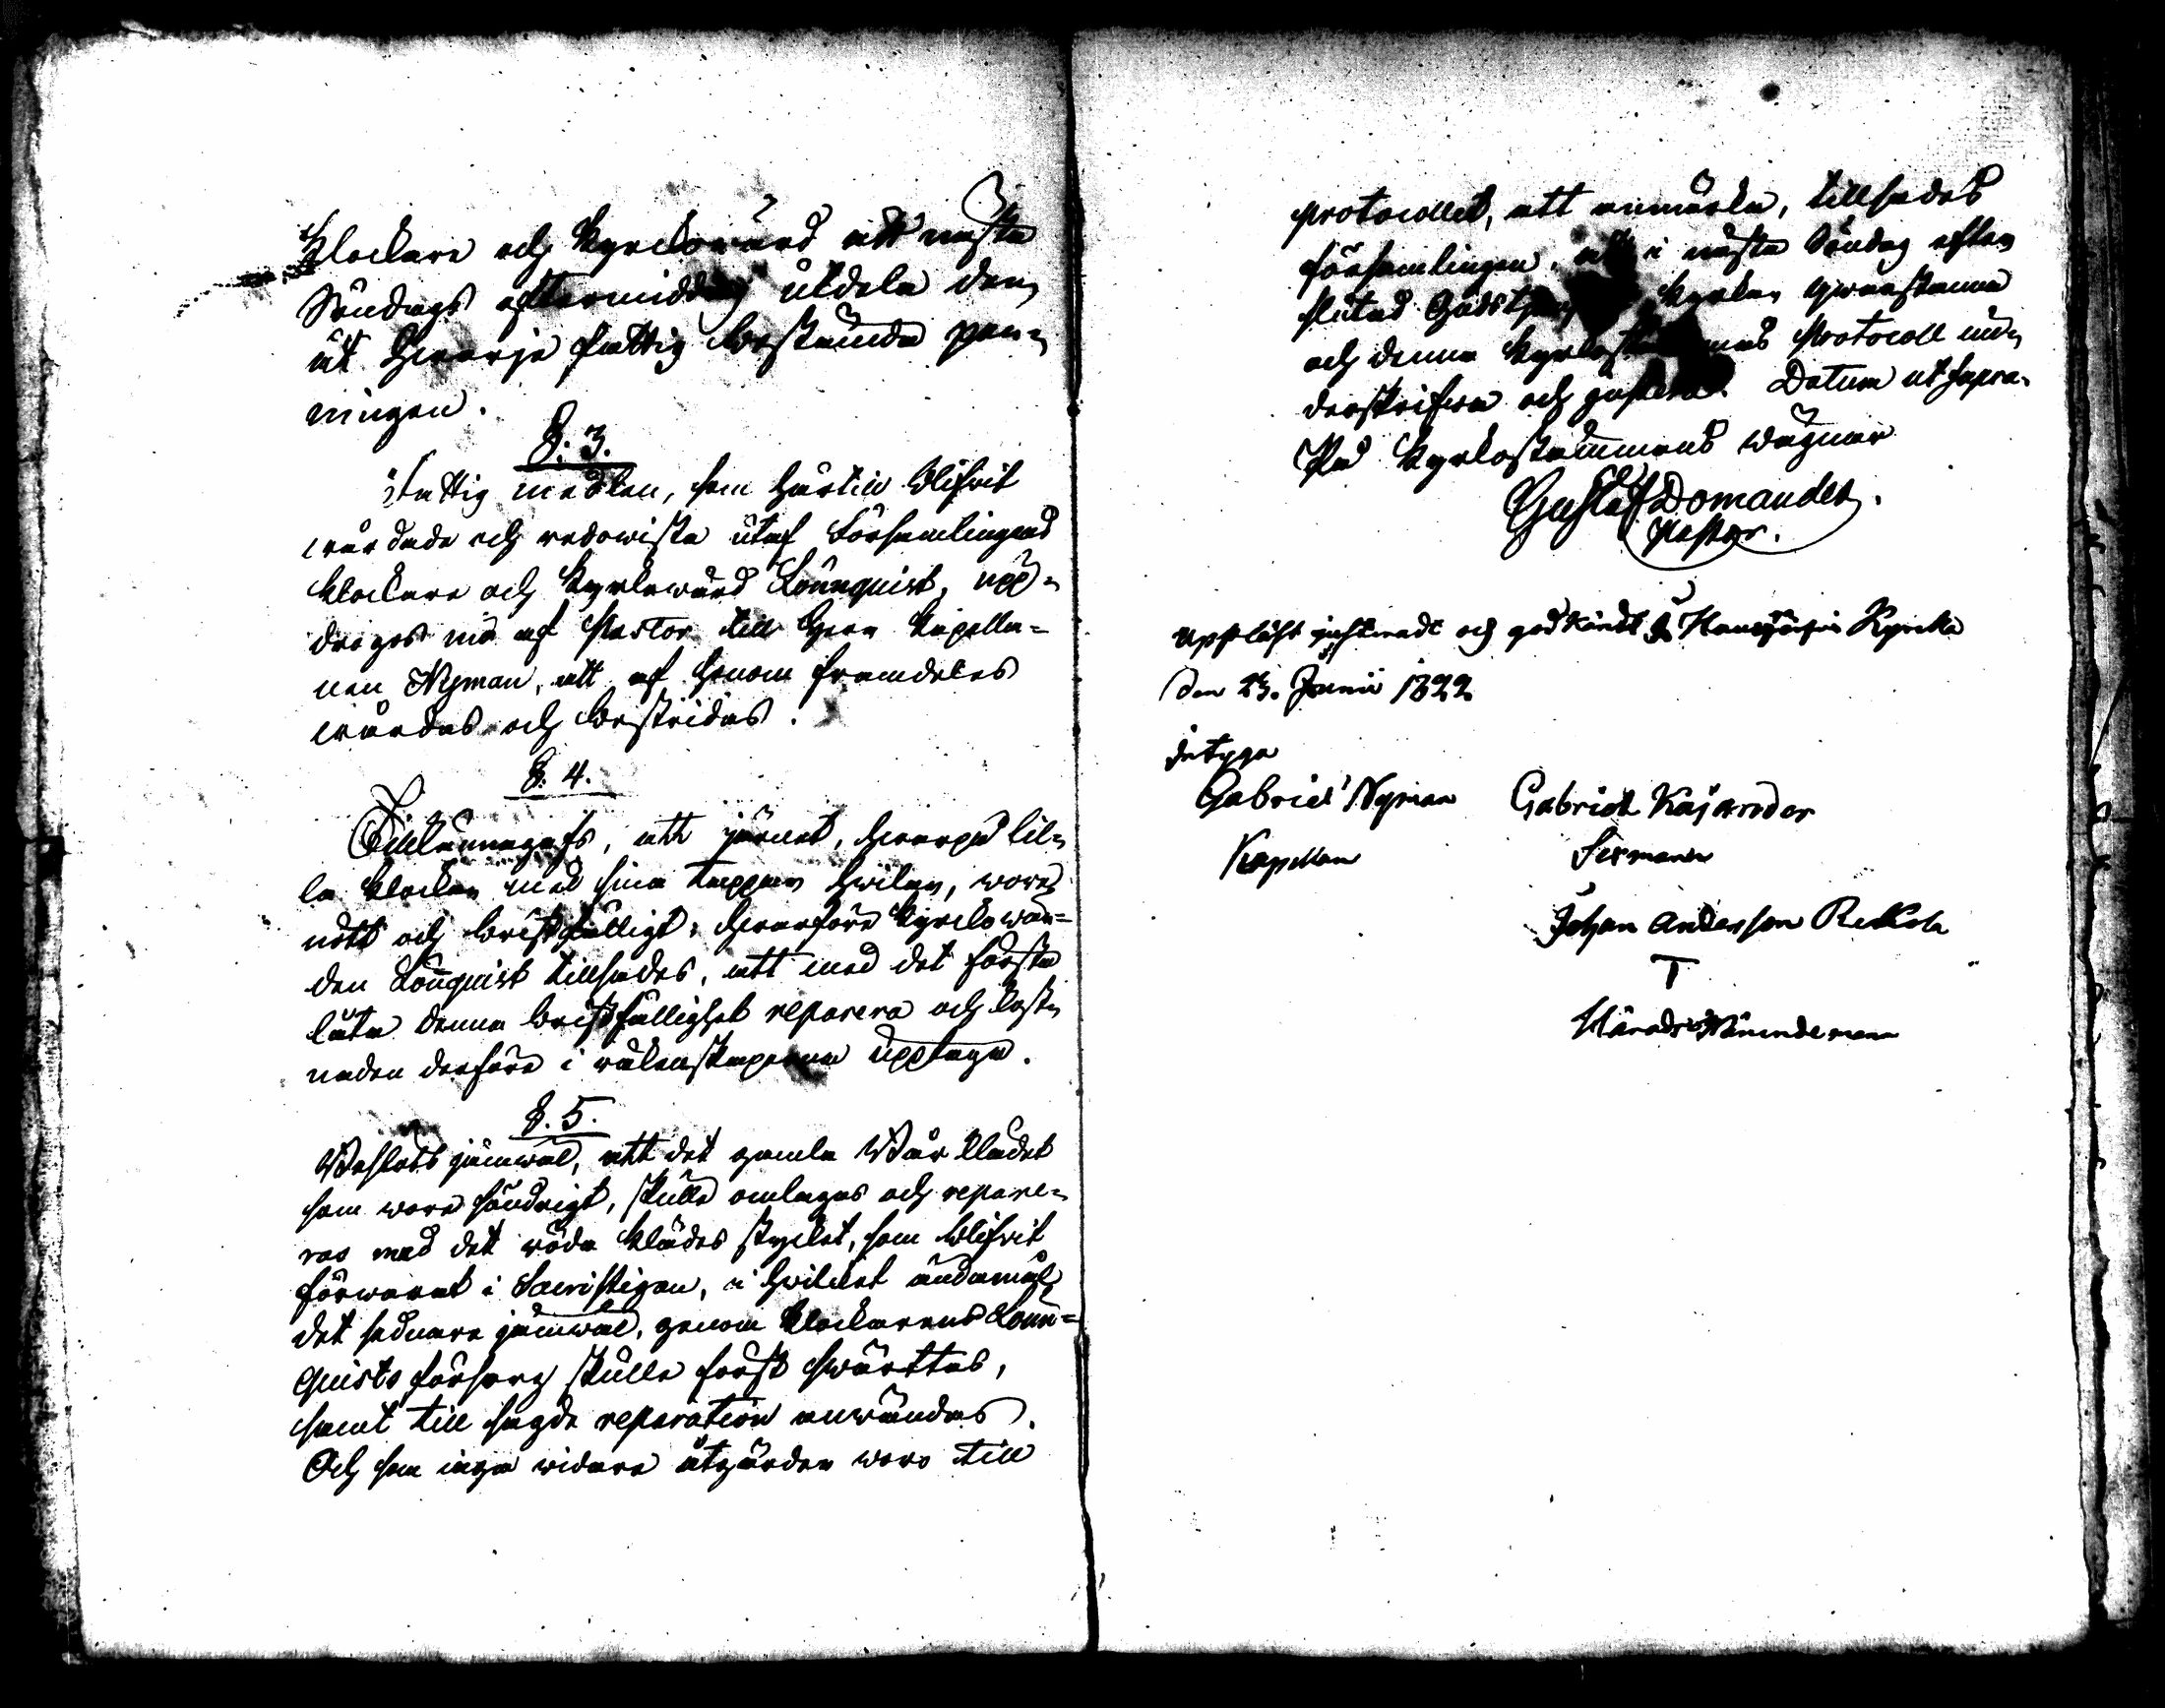 Klockare och Kyrckowärd att nästa
Söndags eftermiddag utdela den
åt Hwarje fattig bestämda pen=
ningen.
§. 3.
Fattig medlen, som härtil blifvit
wårdade och redowista utaf Församlingens
klockare och Kyrkowärd Lönnquist, upp=
drogos nu af Pastor till Herr Kapella=
nen Nyman, att af honom framdeles
wårdas och bestridas.
§. 4.
Tillkännagafs, att järnet, hwarpå lil=
la klockan med sina tappar hwilar, wore
nött och bristfälligt; hwarföre Kyrckowär=
den Lönquist tillsades, att med det första
låta denna bristfällighet reparera och kost=
naden derföre i räkenskaperna upptaga.
§. 5.
Beslöts jämwäl, att det gamla Bår klädet
som wore söndrigt, skulle omlagas och repare=
ras med det röda klädes stycket, som blifvit
förwarat i Sacristigan, i hvilket ändamål
det sednare jämwäl, genom klockarens Lönn=
quists försorg skulle först swärttas,
samt till sagde reparation anwändas.
Och som inga widare åtgärder woro till
protocollet, att anmärka, tillsades
församlingen, att i nästa Söndag efter
slutad Gudstjenst Kyrkan qwarstanna
och denna Kyrkostämmans Protocoll un=
derskrifwa och justera. Datum ut supra.
På Kyrkostämmans wägnar
Gustaf Domander.
Pastor.
Uppläst justeradt och god kändt i Kyrcka
den 23. Junii 1822
betyga
Gabriel Nyman Gabriel
Kapellan Sexman
Johan Andersson
T
Härads Nämndeman